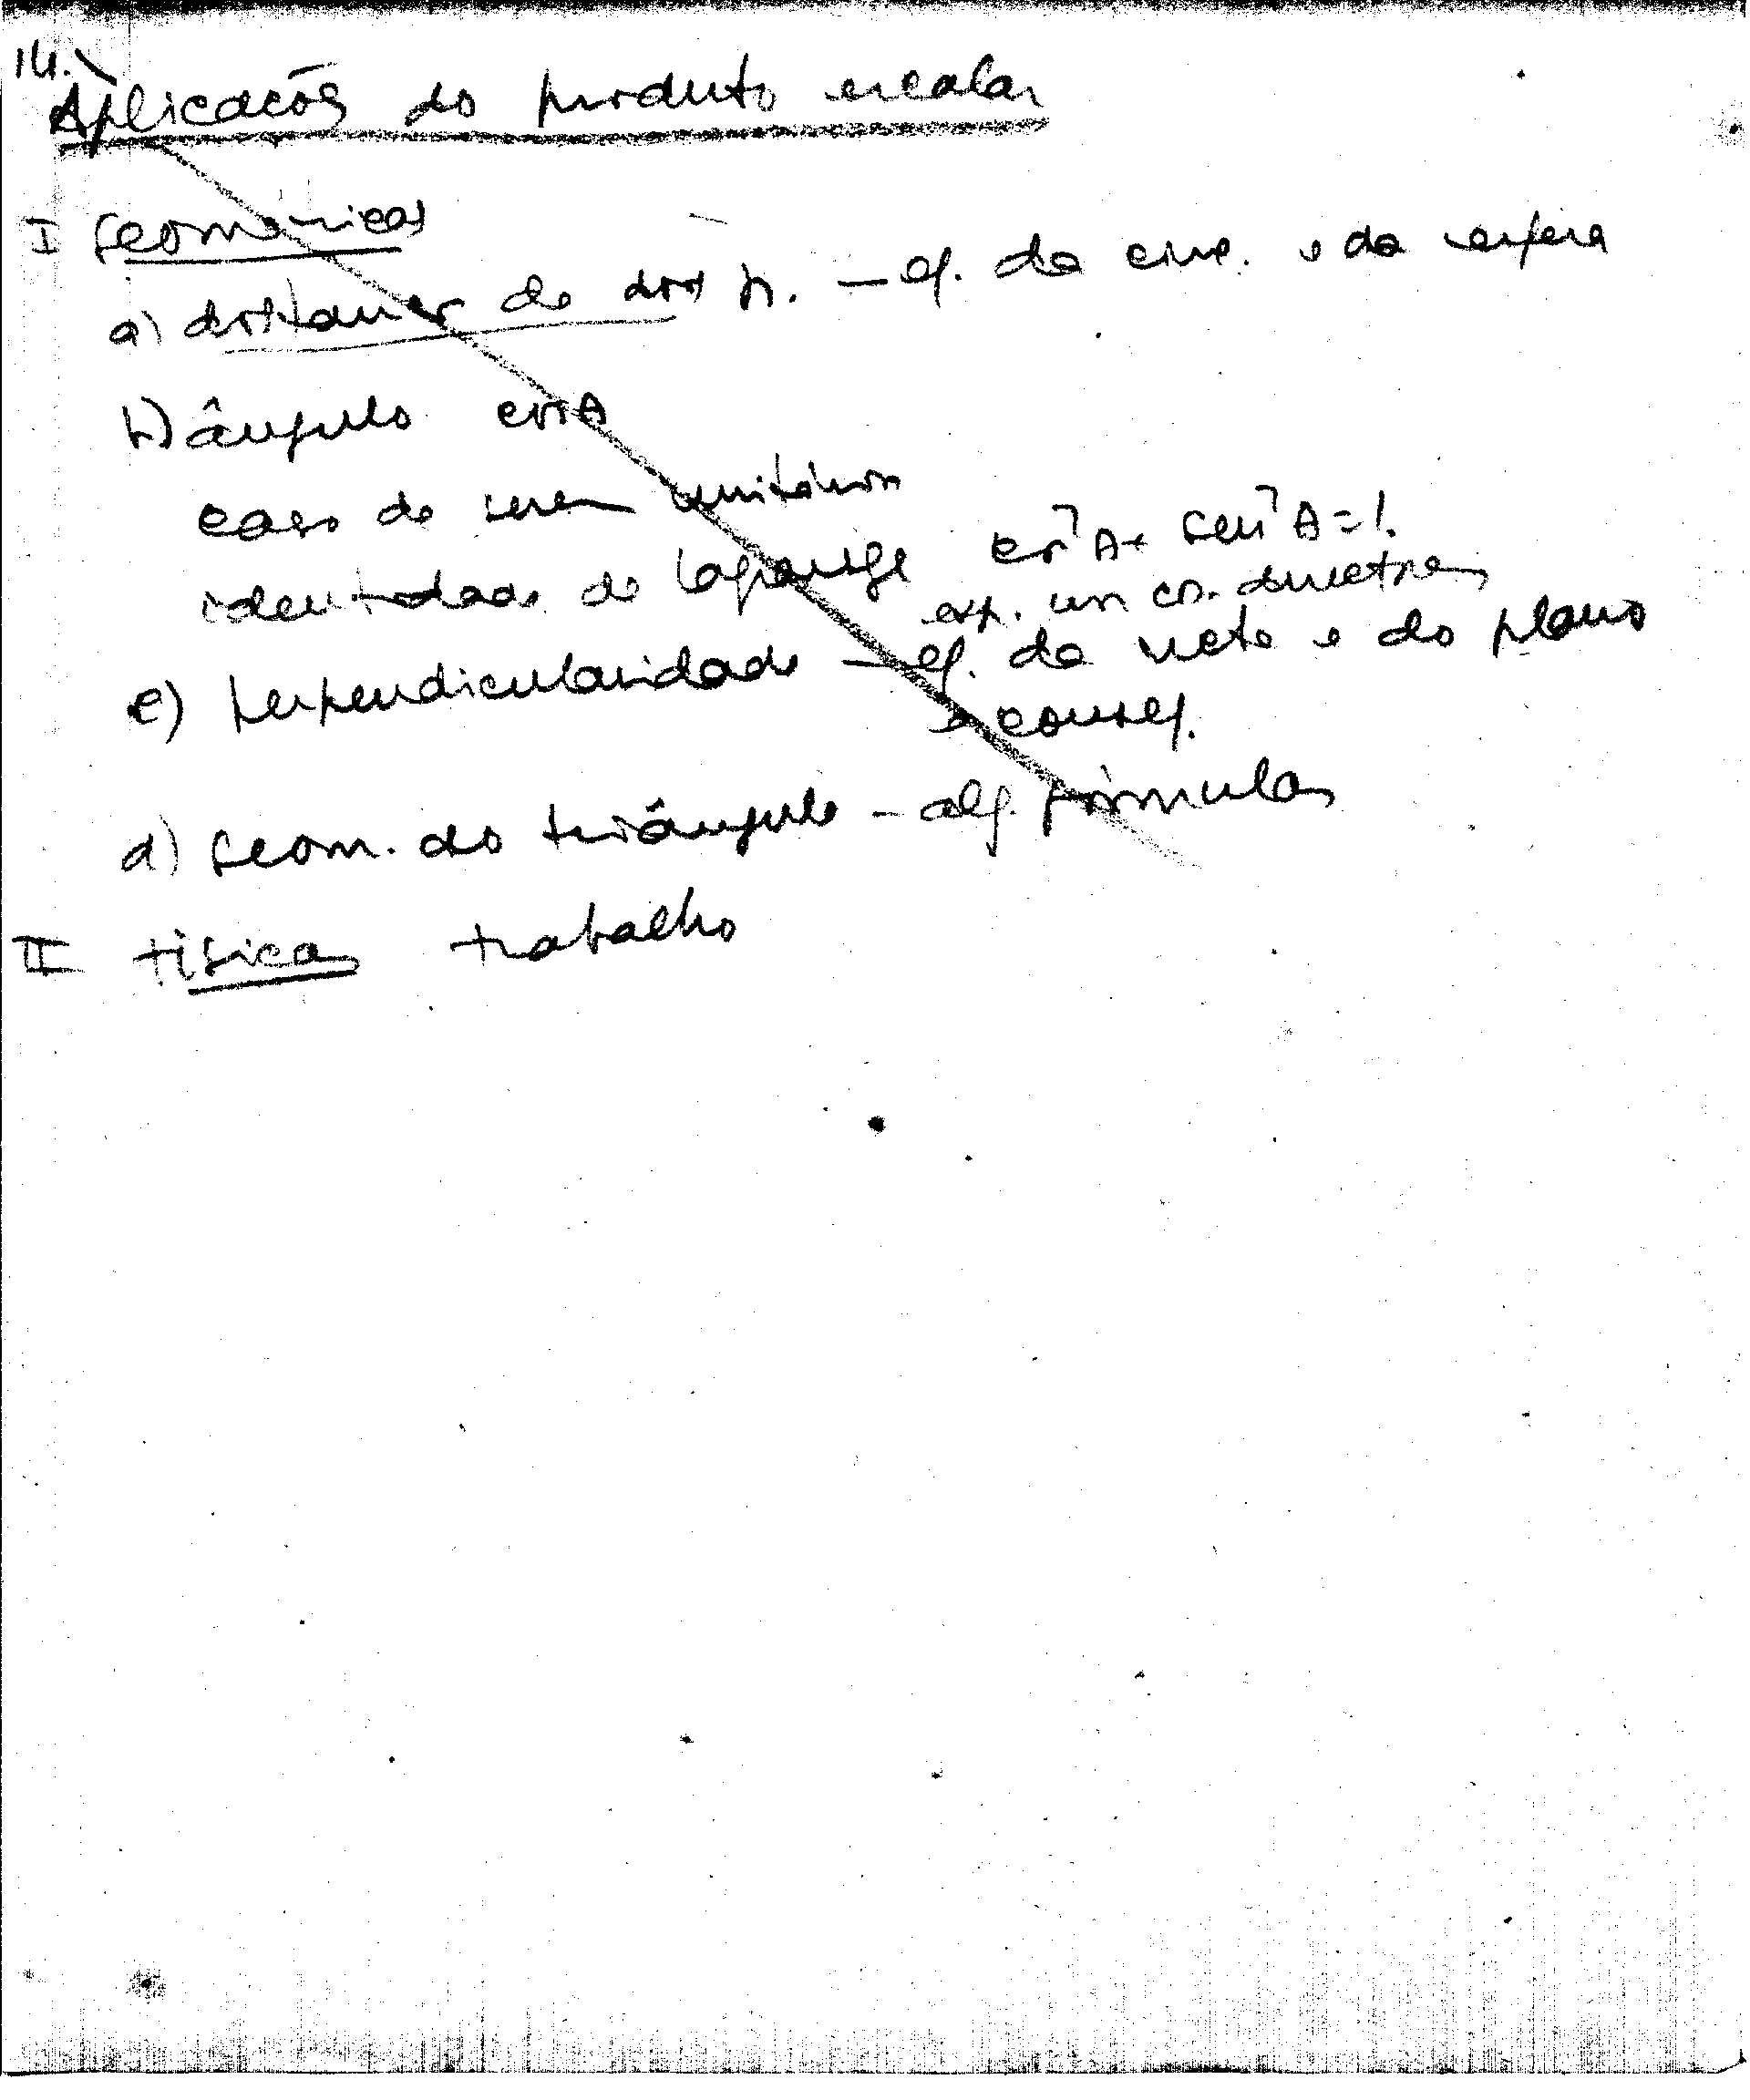 14.
Aplicacões do produto escalar
I Geométricas
a) distancia de dois p. – eq. da circ. e da esfera
b) ângulo cos A
caso de serem unitários
identidade de Lagrange cos² A + sen² A = 1.
exp. em co. directores
c) perpendicularidade – eq. da recta e do plano
e conseq.
d) Geom. do triângulo – alg. fórmulas
II Físicas trabalho